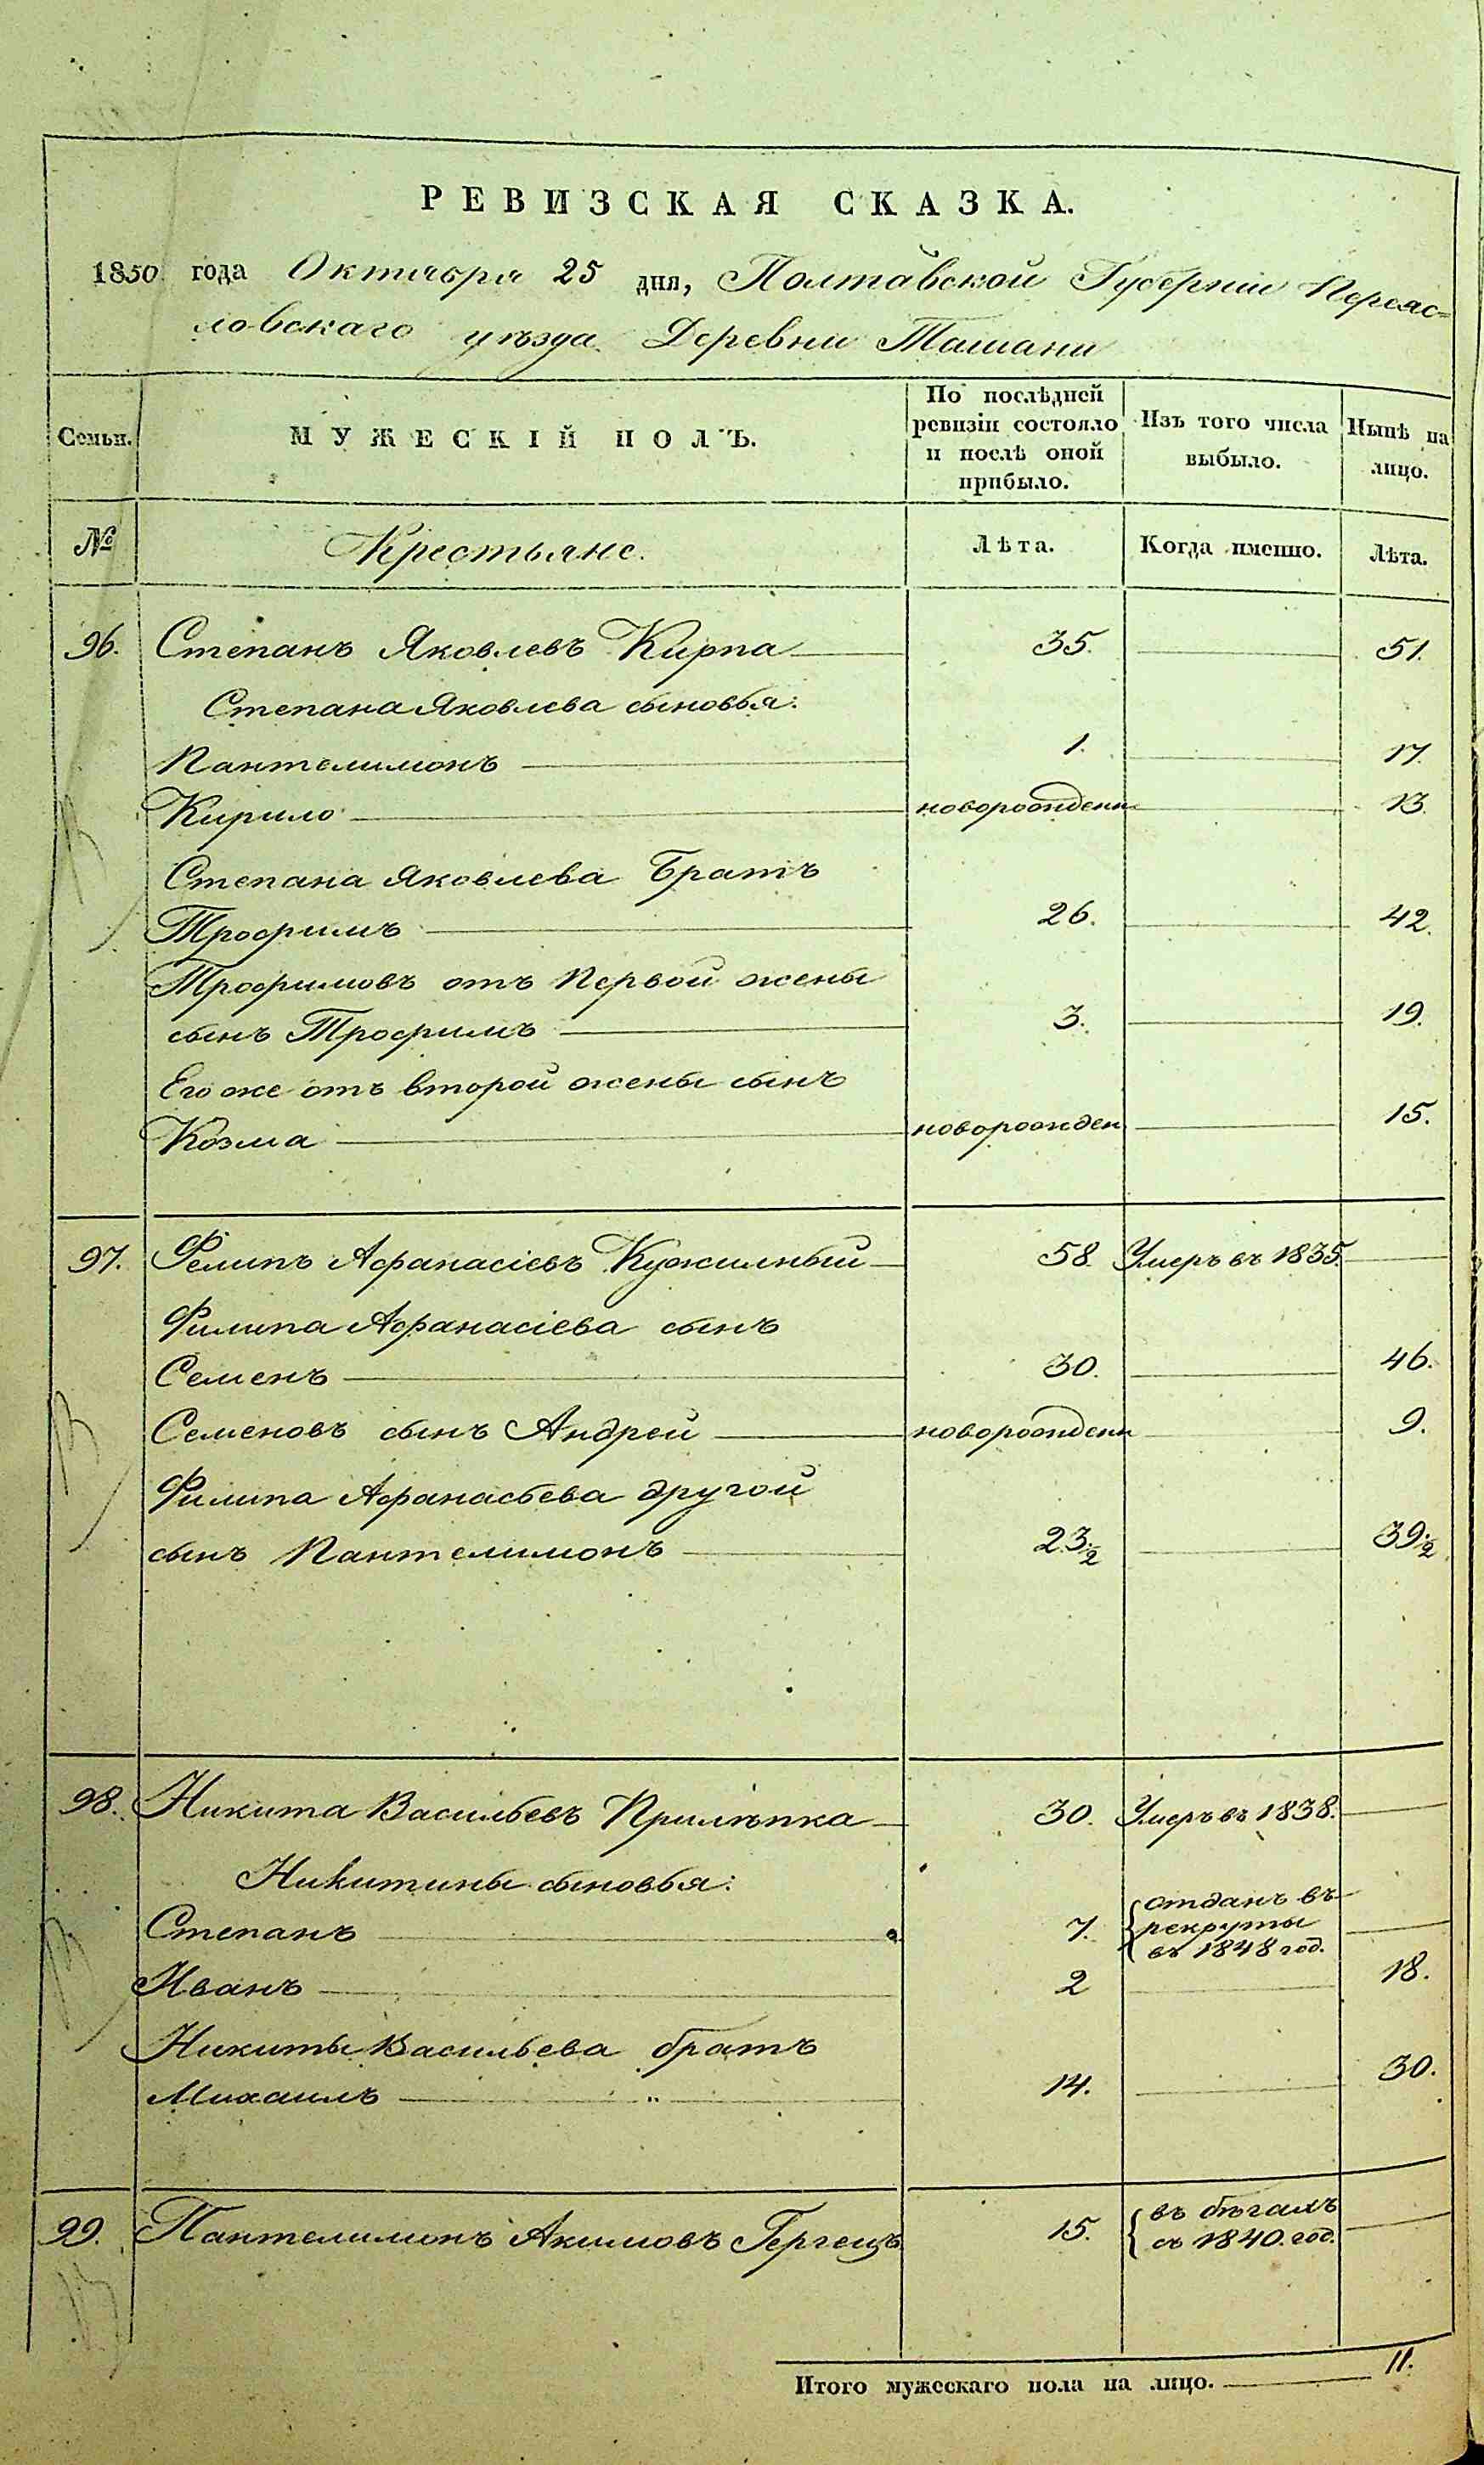 РЕВИЗСКАЯ СКАЗКА.
1850 года Октября 25 дня, Полтавской Губернии Переяс=
ловскаго уѣзда Деревни Ташани
Семьи. МУЖЕСКІЙ ПОЛЪ. По послѣдней ревизіи состояло и послѣ оной прибыло. Изъ того числа выбыло. Нынѣ на лицо.
№ Крестьяне. Лѣта. Когда именно. Лѣта.
96. Степанъ Яковлевъ Кирпа 35. 51.
Степана Яковлева сыновья:
Пантелимонъ 1. 17.
Кирило новорожденн 13.
Степана Яковлева Братъ
Трофимъ 26. 42.
Трофимовъ отъ Первой жены
сынъ Трофимъ 3. 19.
Его же отъ второй жены сынъ
Козма новорожден 15.
97. Филипъ Афанасіевъ Кужильный 58. Умеръ въ 1835.
Филипа Афанасіева сынъ
Семенъ 30. 46.
Семеновъ сынъ Андрей новорожденн 9.
Филипа Афанасьева другой
сынъ Пантелимонъ 23 1/2 39 1/2
98. Никита Васильевъ Прилѣпка 30. Умеръ въ 1838.
Никитины сыновья:
Степанъ 7. отданъ въ рекруты въ 1848 год.
Иванъ 2 18.
Никиты Васильева братъ
Михаилъ " 14. 30.
99. Пантелимонъ Акимовъ Гергецъ 15. въ бѣгахъ съ 1840. год.
Итого мужескаго пола на лицо. 11.